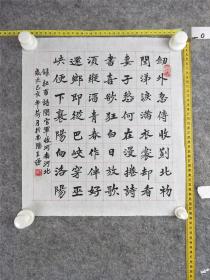 劍外忽傳收薊北初
聞涕淚滿衣裳却看
妻子愁何在漫捲詩
書喜欲狂白日放歌
須縱酒青春作伴好
還鄉即從巴峽穿巫
峽便下襄陽向洛陽
錄杜甫詩聞官軍收河南河北
歲次己亥年荷月於南陽王